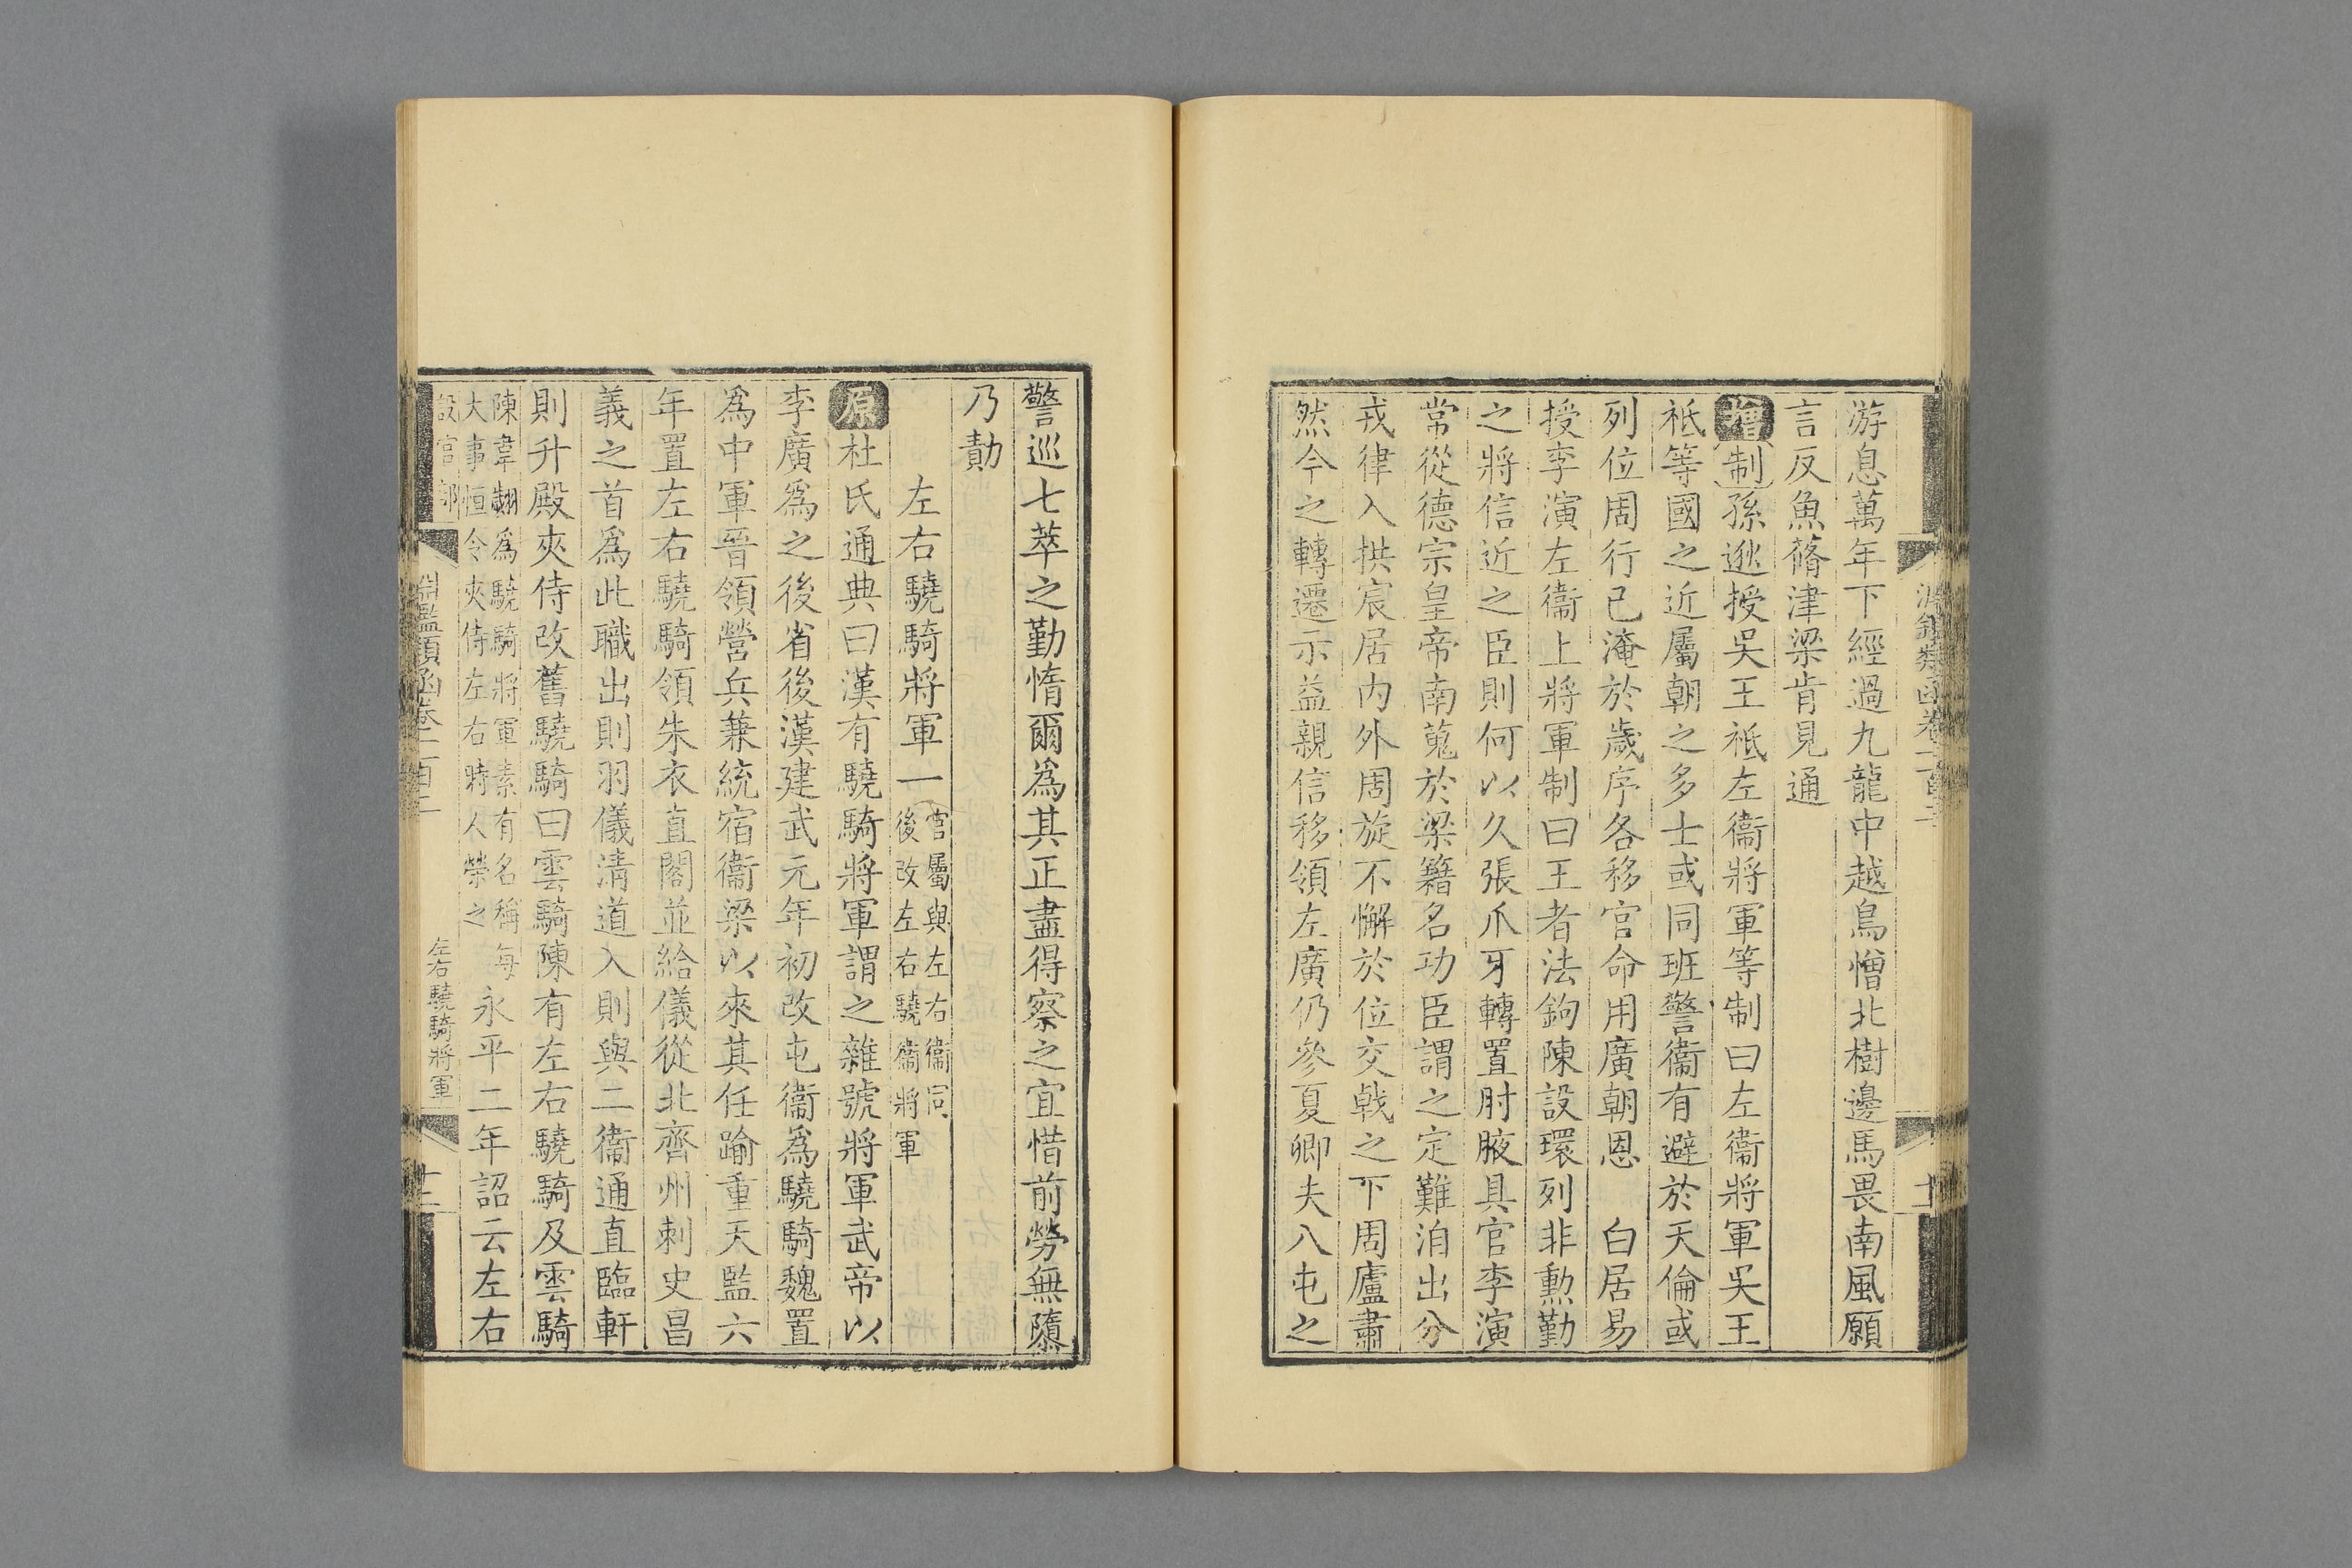 游息萬年下經過九龍中越鳥憎北樹邊馬畏南風願
言反魚蓨津梁肯見通
增制孫逖授吳王祗左衞將軍等制曰左衞將軍吳王
祗等國之近屬朝之多士或同班警衞有避於天倫或
列位周行已淹於歲序各移官命用廣朝恩 白居易
授李演左衞上將軍制曰王者法鉤陳設環列非勲勤
之將信近之臣則何以久張爪牙轉置肘腋具官李演
常從德宗皇帝南蒐於梁籍名功臣謂之定難洎出分
戎律入拱宸居内外周旋不懈於位交戟之下周廬肅
然今之轉遷示益親信移領左廣仍參夏卿夫八屯之
警巡七萃之勤惰爾爲其正盡得察之宜惜前勞無隳
乃勣
左右驍騎將軍一
官屬與左右衞同
後改左右驍衞將軍
原杜氏通典曰漢有驍騎將軍謂之雜號將軍武帝以
李廣爲之後省後漢建武元年初改屯衞爲驍騎魏置
爲中軍晉領營兵兼統宿衞梁以來其任踰重天監六
年置左右驍騎領朱衣直閤並給儀從北齊州刺史昌
義之首爲此職出則羽儀清道入則與二衞通直臨軒
則升殿夾侍改舊驍騎曰雲騎陳有左右驍騎及雲騎
陳韋翽爲驍騎將軍素有名稱每
大事恒令夾侍左右時人榮之
永平二年詔云左右
淵鑑類函卷一百二
左右驍騎將軍
十二